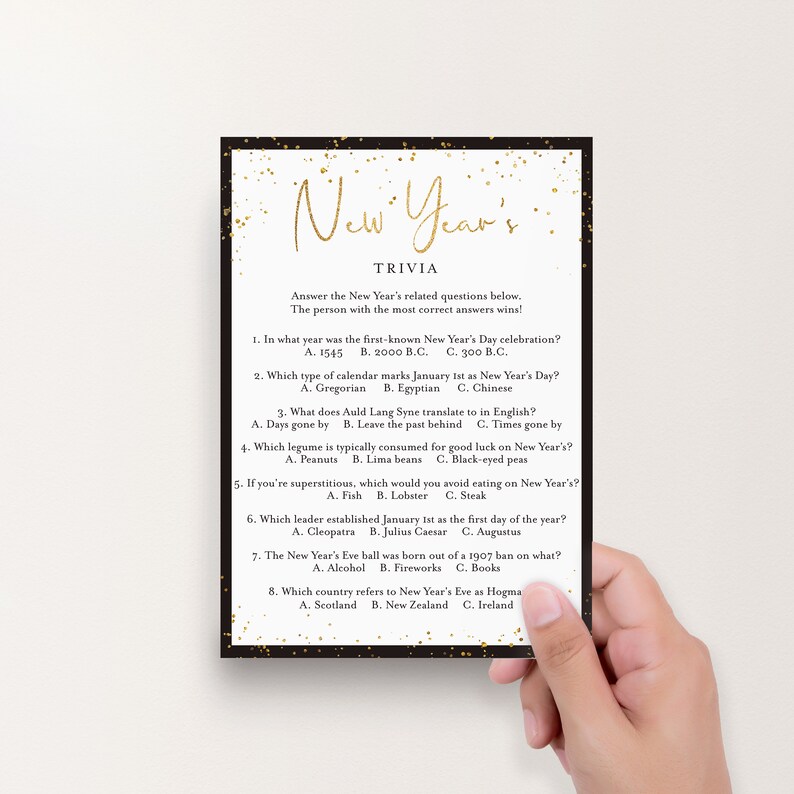 New Year's
TRIVIA
Answer the New Year's related questions below.
The person with the most correct answers wins!
1. In what year was the first-known New Year's Day celebration?
A. 1545 B. 2000 B.C. C. 300 B.C.
2. Which type of calendar marks January 1st as New Year's Day?
A. Gregorian B. Egyptian C. Chinese
3. What does Auld Lang Syne translate to in English?
A. Days gone by B. Leave the past behind C. Times gone by
4. Which legume is typically consumed for good luck on New Year's?
A. Peanuts B. Lima beans C. Black-eyed peas
5. If you're superstitious, which would you avoid eating on New Year's?
A. Fish B. Lobster C. Steak
6. Which leader established January 1st as the first day of the year?
A. Cleopatra B. Julius Caesar C. Augustus
7. The New Year's Eve ball was born out of a 1907 ban on what?
A. Alcohol B. Fireworks C. Books
8. Which country refers to New Year's Eve as
A. Scotland B. New Zealand C. Ireland